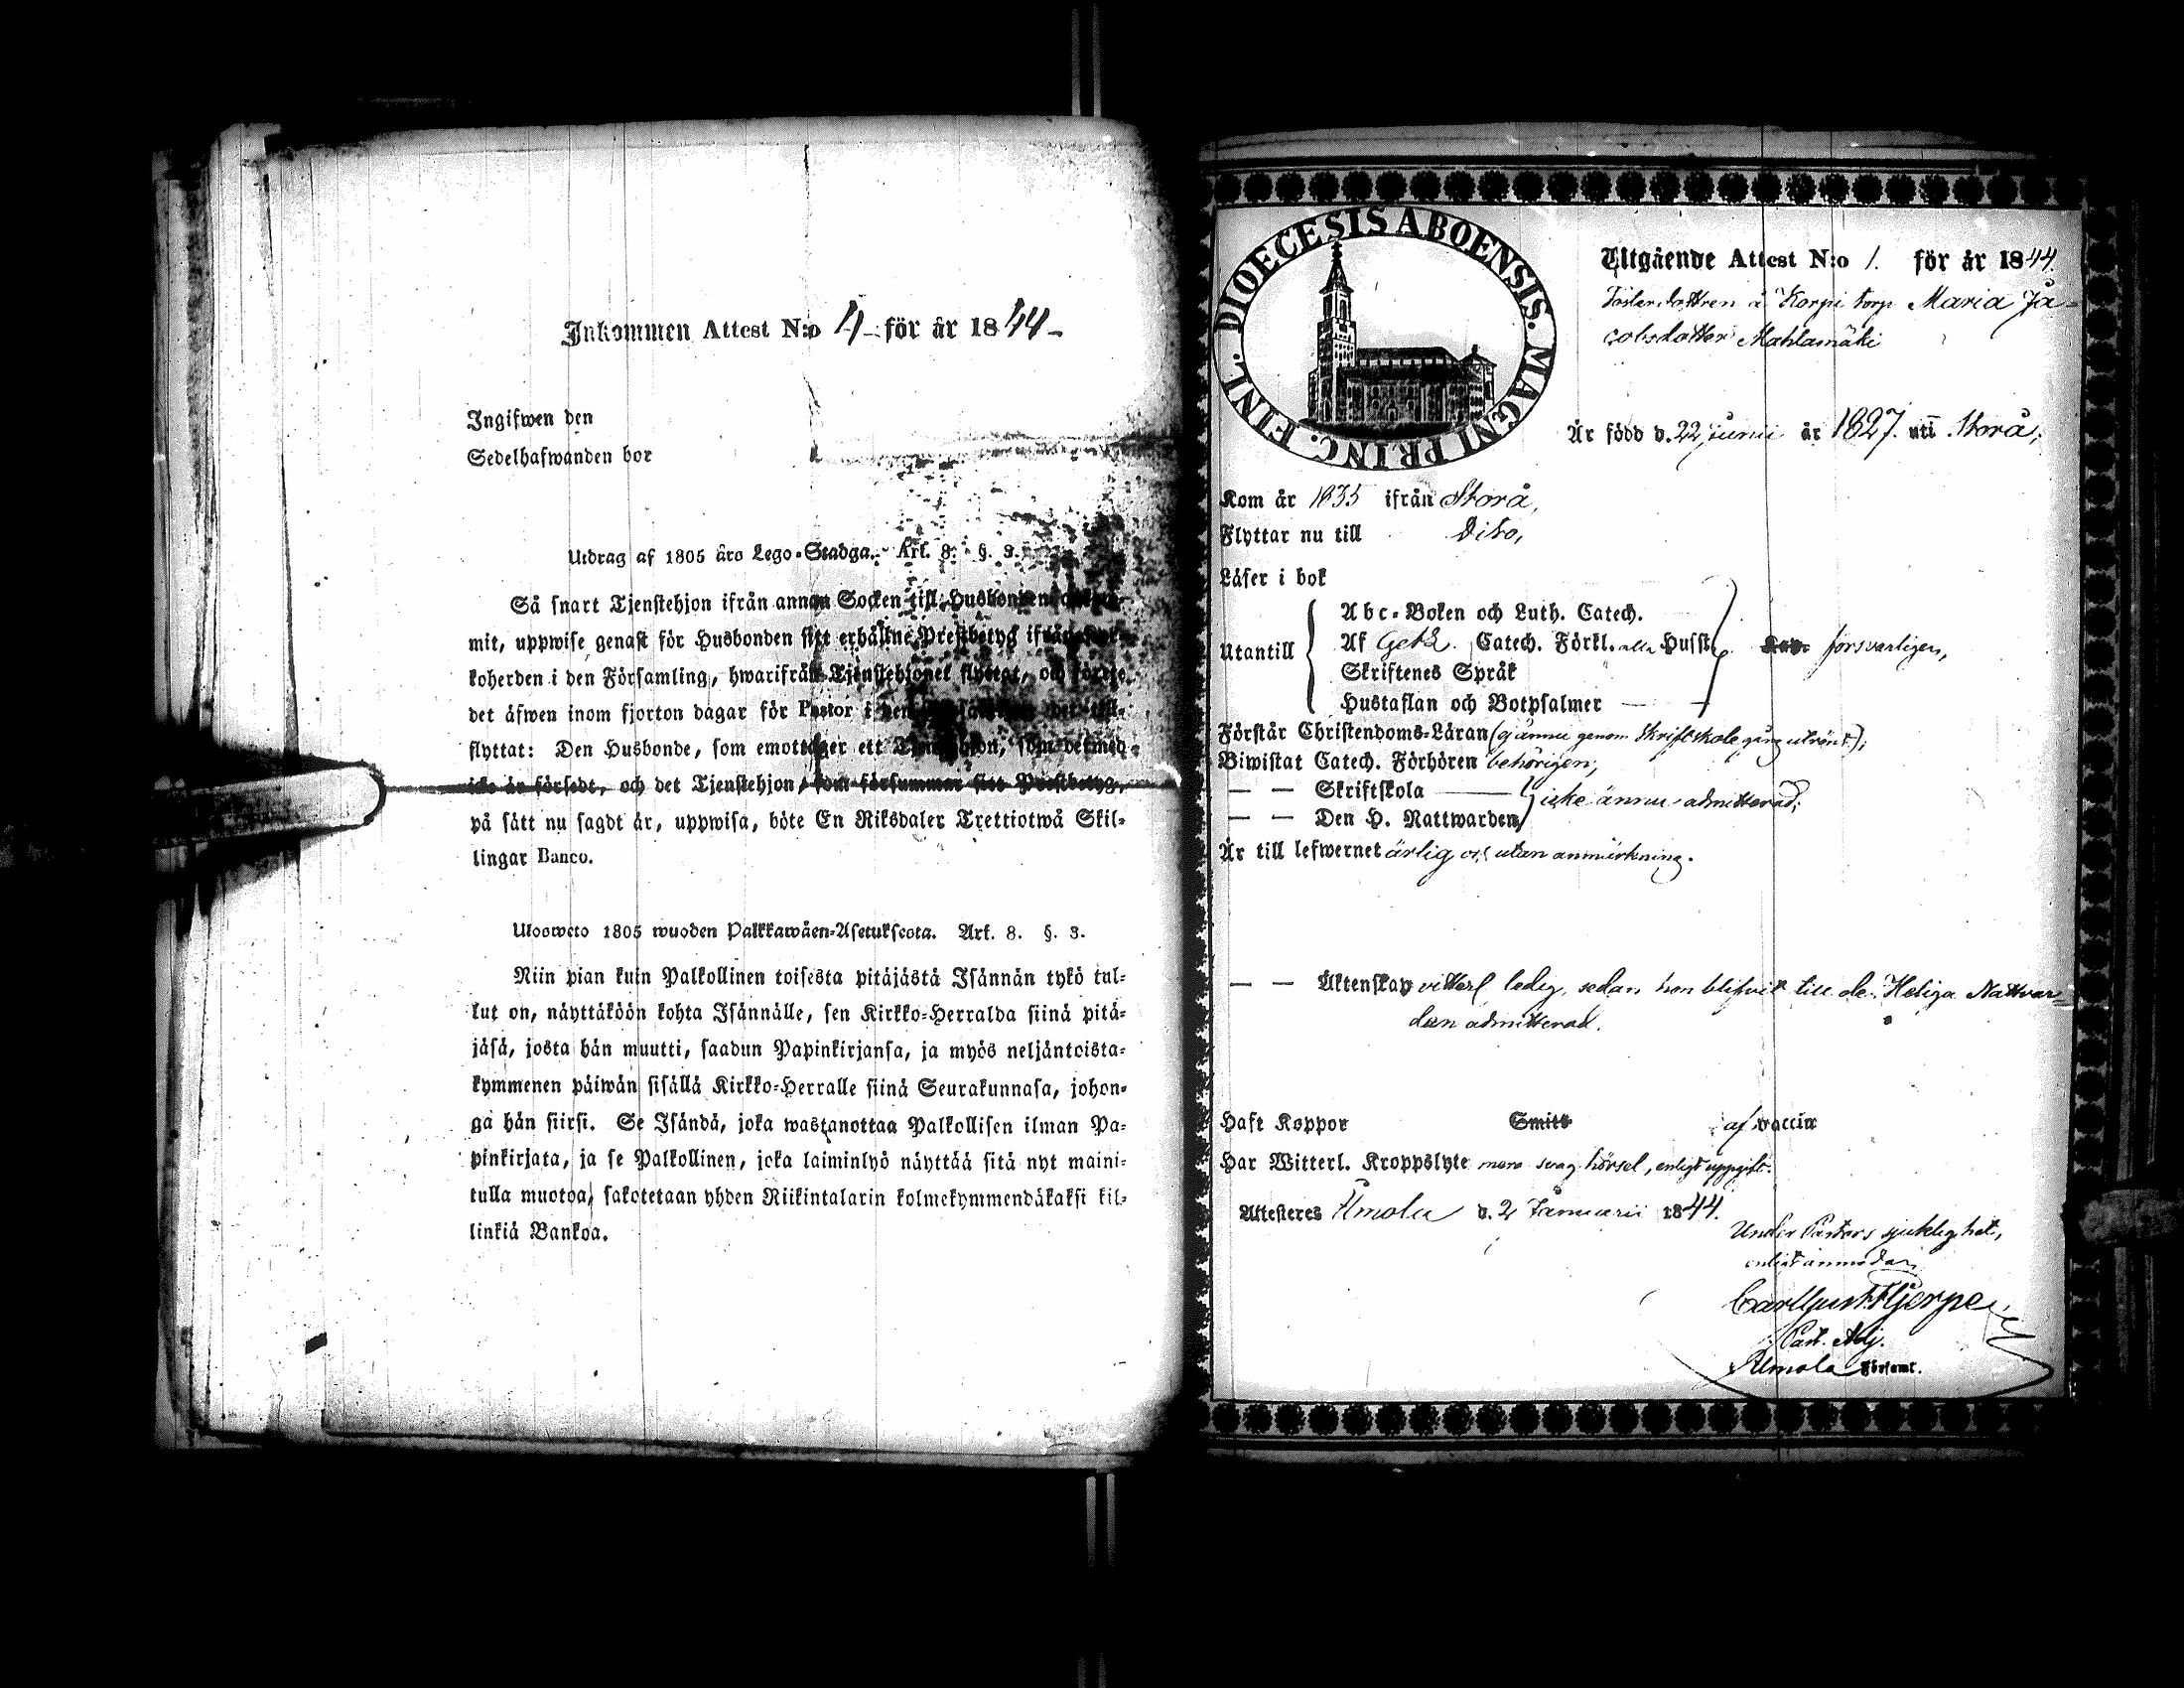 Inkommen Attest N:o 4 för år 1844
Ingifwen den
Sedelhafwanden bor
Utdrag af 1805 års Lego-Stadga. Art. 8. §. 3.
Så snart Tjenstehjon ifrån annan Socken till Husbonden
mit, uppwise genast för Husbonden sitt erhållne Prestbetyg ifrån
koherden i den Församling, hwarifrån Tjenstehjonet flyttat, och
det äfwen inom fjorton dagar för Pastor i
flyttat: Den Husbonde, som emottager ett
icke är försedt, och det Tjenstehjon, som försummar sitt Prestbetyg,
på sätt nu sagdt är, uppwisa, böte En Riksdaler Trettiotwå Skil-
lingar Banco.
Ulosweto 1805 wuoden Palkkawäen-Asetuksesta. Art. 8. §. 3.
Niin pian kuin Palkollinen toisesta pitäjästä Isännän tykö tul-
lut on, näyttäköön kohta Isännälle, sen Kirkko-Herralda siinä pitä-
jäsä, josta hän muutti, saadun Papinkirjansa, ja myös neljäntoista-
kymmenen päiwän sisällä Kirkko-Herralle siinä Seurakunnasa, johon-
ga hän siirsi. Se Isändä, joka wastanottaa Palkollisen ilman Pa-
pinkirjata, ja se Palkollinen, joka laiminlyö näyttää sitä nyt maini-
tulla muotoa, sakotetaan yhden Riikintalarin kolmekymmendäkaksi kil-
linkiä Bankoa.
DIOECESIS ABOENSIS. MAGNI PRINC. FINL.
Utgående Attest N:o 1. för år 1844.
å Korpi torp Maria Ja-
cobsdotter Mahlamäki
Är född d. 22 Junii år 1827. uti Storå,
Kom år 1835 ifrån Storå,
Flyttar nu till Dito,
Läser i bok
Abc-Boken och Luth. Catech.
Utantill Af Catech. Förkl. alla Husst. försvarligen,
Skriftenes Språk
Hustaflan och Botpsalmer
Förstår Christendoms-Läran (ej ännu genom Skriftskolegång utrönt);
Biwistat Catech. Förhören behörigen;
— — Skriftskola
icke ännu admitterad;
— — Den H. Nattwarden
Är till lefwernet ärlig och utan anmärkning.
— — Äktenskap vitterl. ledig, sedan hon blifvit till de Heliga Nattvar-
den admitterad.
Haft Koppor Smitt af vaccin
Har Witterl. Kroppslyte mera svag hörsel, enligt uppgift.
Attesteres Ilmola d. 2 Januarii 1844.
Under Pastors sjuklighet,
enligt anmodan
Carl Gust. Hjerpe
Past. Adj.
Ilmola Församl.